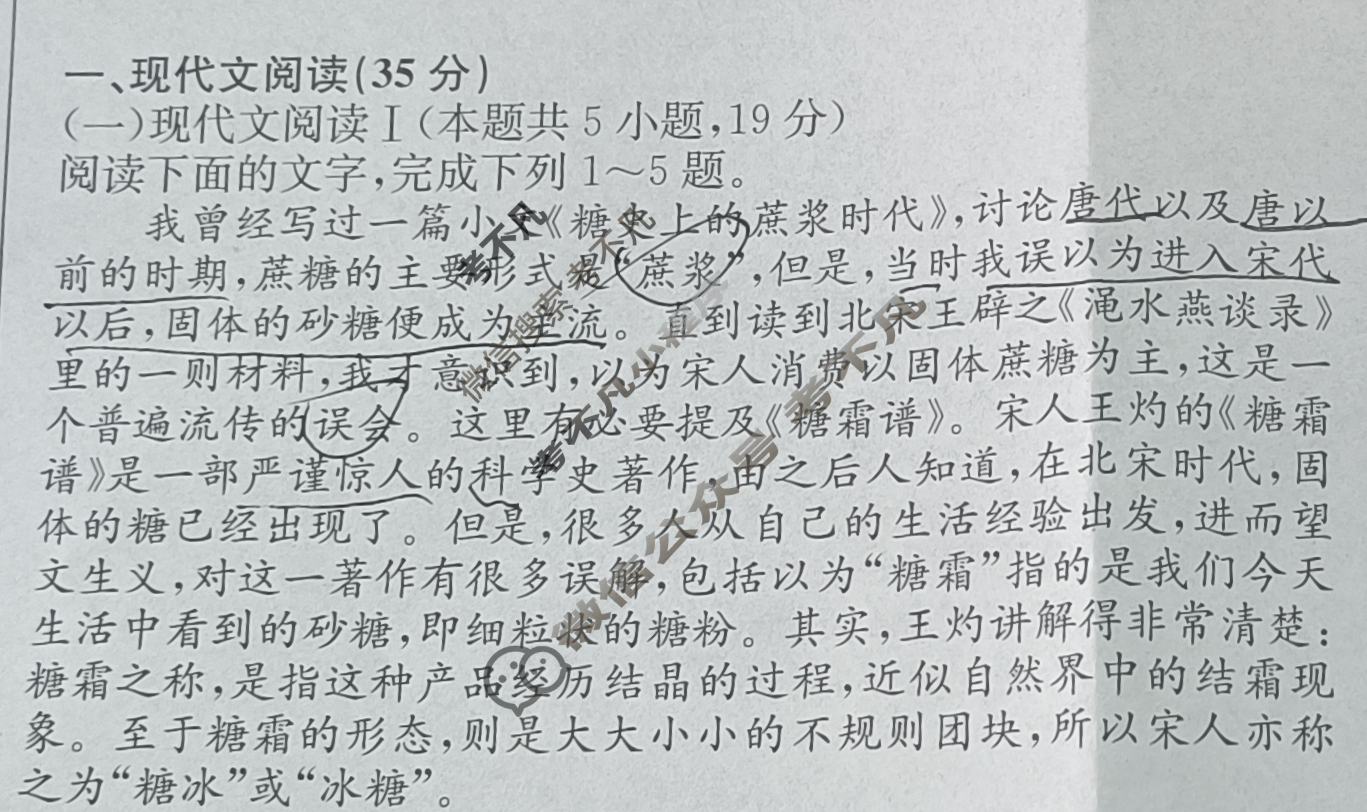 一、现代文阅读(35 分)
(一)现代文阅读Ⅰ(本题共 5 小题,19 分)
阅读下面的文字,完成下列 1～5 题。
我曾经写过一篇小文《糖史上的蔗浆时代》,讨论唐代以及唐以
前的时期,蔗糖的主要形式是“蔗浆”,但是,当时我误以为进入宋代
以后,固体的砂糖便成为主流。直到读到北宋王辟之《渑水燕谈录》
里的一则材料,我才意识到,以为宋人消费以固体蔗糖为主,这是一
个普遍流传的误会。这里有必要提及《糖霜谱》。宋人王灼的《糖霜
谱》是一部严谨惊人的科学史著作,由之后人知道,在北宋时代,固
体的糖已经出现了。但是,很多人从自己的生活经验出发,进而望
文生义,对这一著作有很多误解,包括以为“糖霜”指的是我们今天
生活中看到的砂糖,即细粒状的糖粉。其实,王灼讲解得非常清楚:
糖霜之称,是指这种产品经历结晶的过程,近似自然界中的结霜现
象。至于糖霜的形态,则是大大小小的不规则团块,所以宋人亦称
之为“糖冰”或“冰糖”。
考不凡
考不凡
微信搜索
考不凡小程序
微信公众号
考不凡